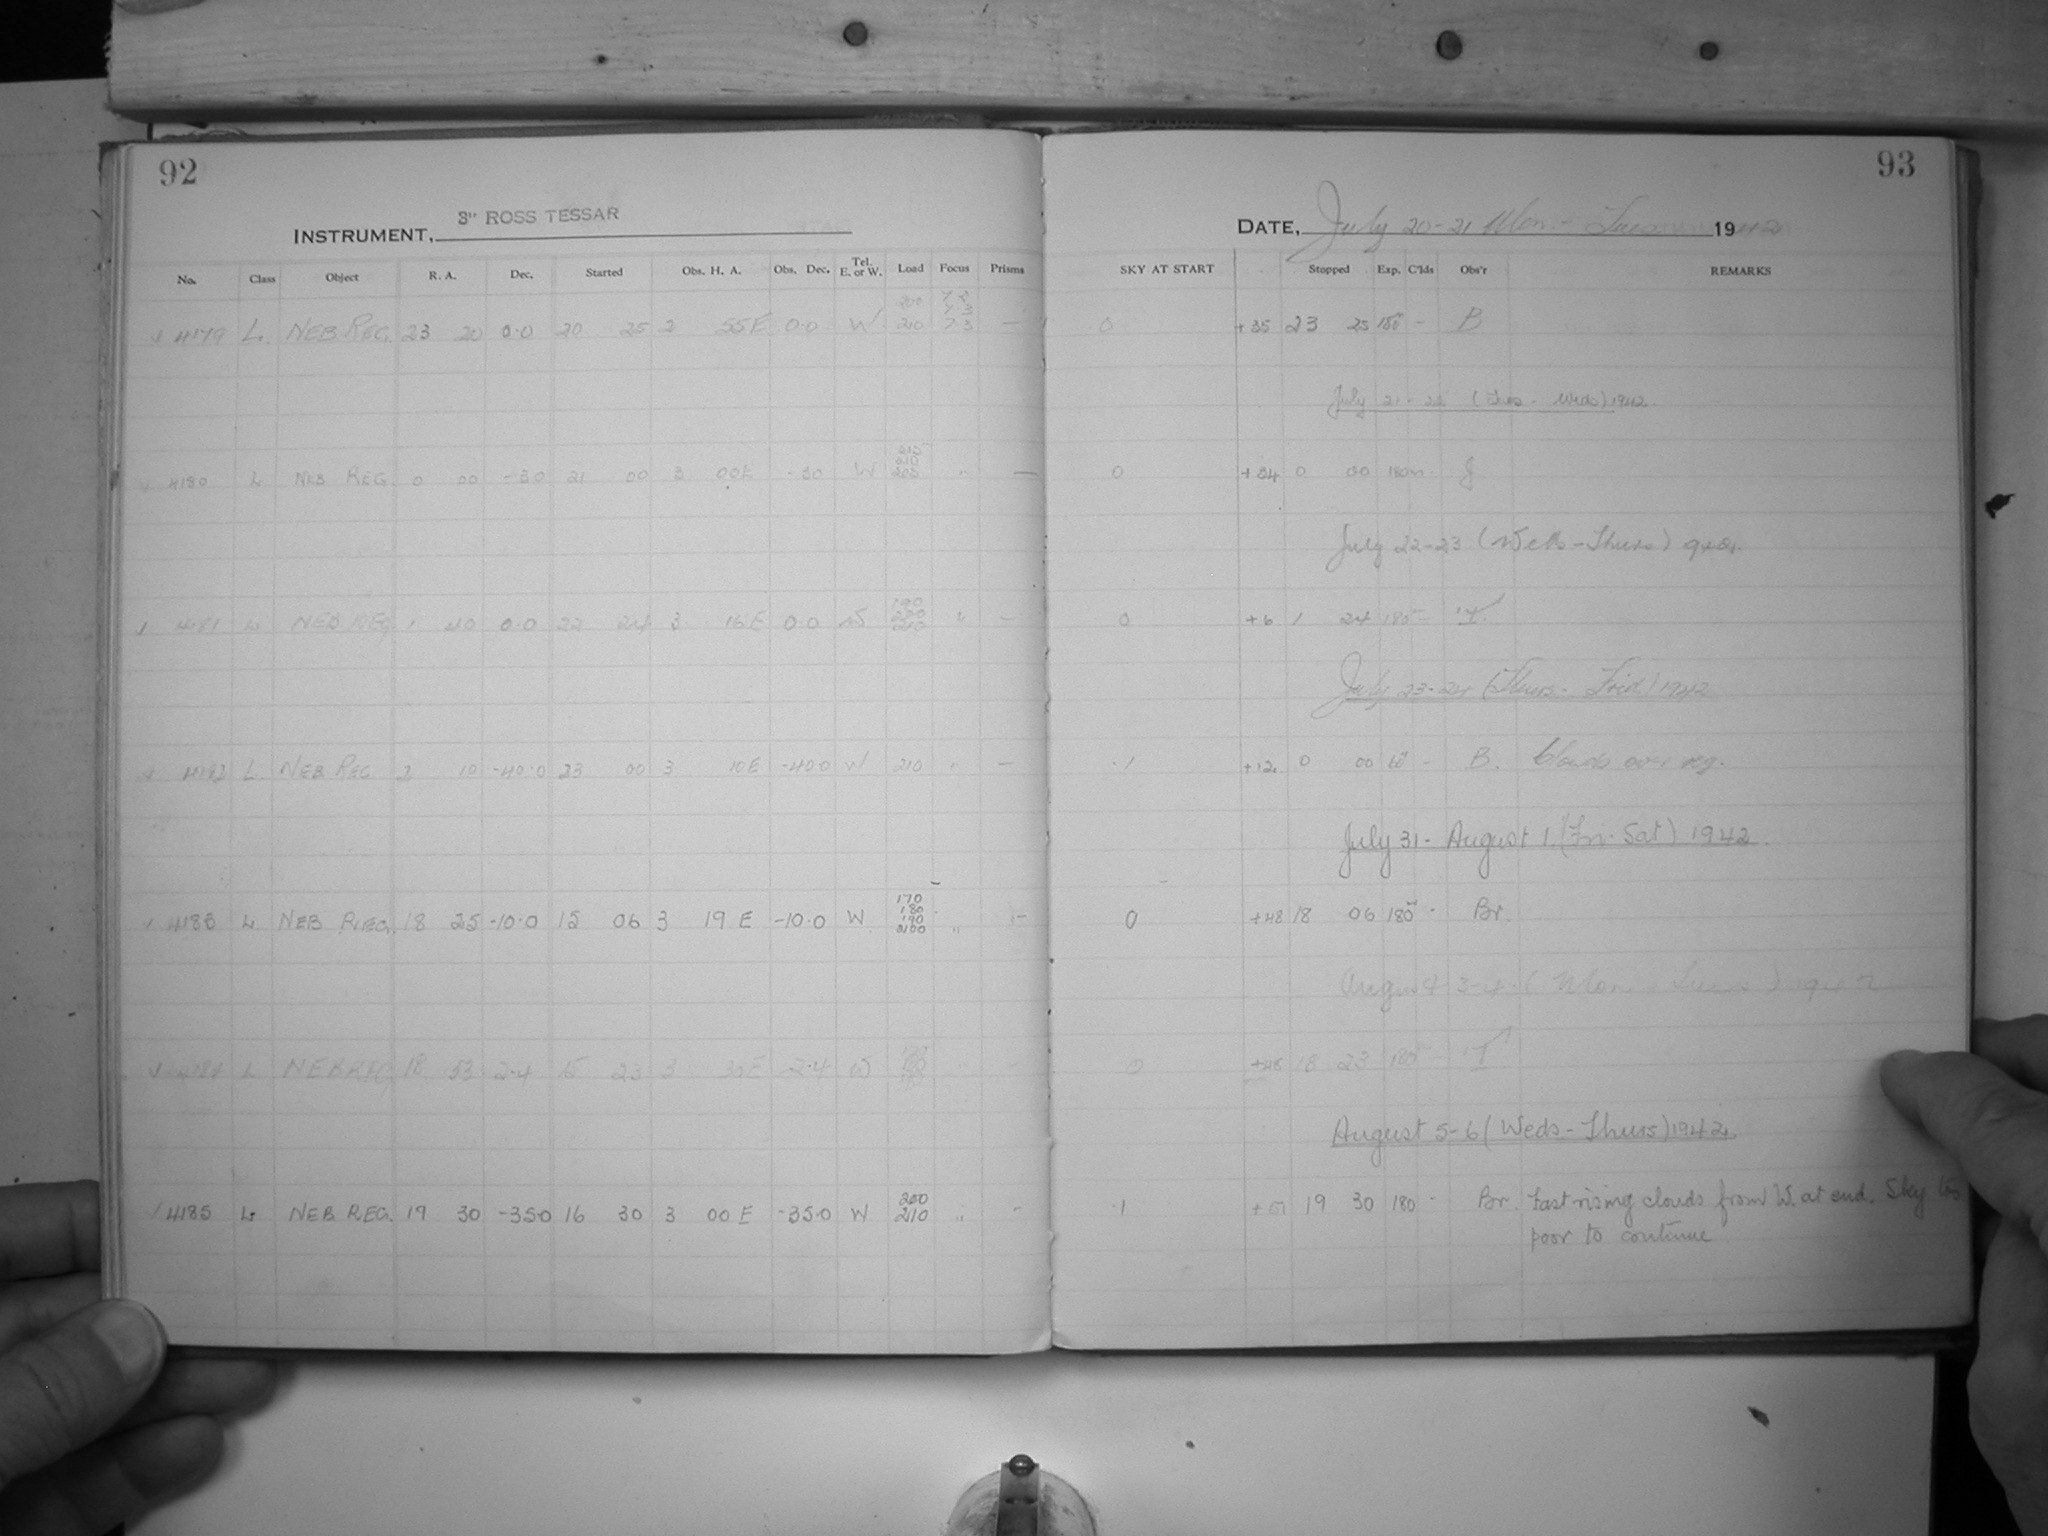 92
3" ROSS TESSAR
INSTRUMENT,
No. Class Object R. A. Dec. Started Obs. H. A. Obs. Dec. Tel. E. or W. Load Focus Prisms
√ 4179 L. NEB. REG. 23 20 0.0 20 25 2 55 E 0.0 W 200 210 7.3 7.3 —
4180 L NEB REG. 0 00 -30 21 00 3 00 E -30 W 215 210 205 " —
√ 4181 L NEB. REG. 1 40 0.0 22 24 3 16 E 0.0 W 190 200 210 " —
√ 4182 L NEB REG. 2 10 -40.0 23 00 3 10 E -40.0 W 210 " —
√ 4183 L NEB REG. 18 25 -10.0 15 06 3 19 E -10.0 W 170 180 190 200 " -
√ 4184 L NEB REG. 18 53 -2.4 15 23 3 30 E -2.4 W -
√ 4185 L NEB REG. 19 30 -35.0 16 30 3 00 E -35.0 W 200 210 " -
93
DATE, July 20-21 Mon. - Tues 1942
SKY AT START Stopped Exp. C'lds Obs'r REMARKS
0 +35 23 25 180 - B
July 21-22 (Tues - Weds) 1942
0 +34 0 00 180m - J
July 22-23 (Weds - Thurs)
0 +6 1 24 180 -
July 23-24 (Thurs - Frid.) 1942
.1 +12 0 00 60 - B. Clouds over reg.
July 31 - August 1. (Fri - Sat) 1942.
0 +48 18 06 180 - Br.
August 3-4 (Mon - Tues) 1942
0 +48 18 23 180 -
August 5-6 (Weds - Thurs) 1942
.1 +51 19 30 180 - Br. Fast rising clouds from W. at end. Sky too
poor to continue